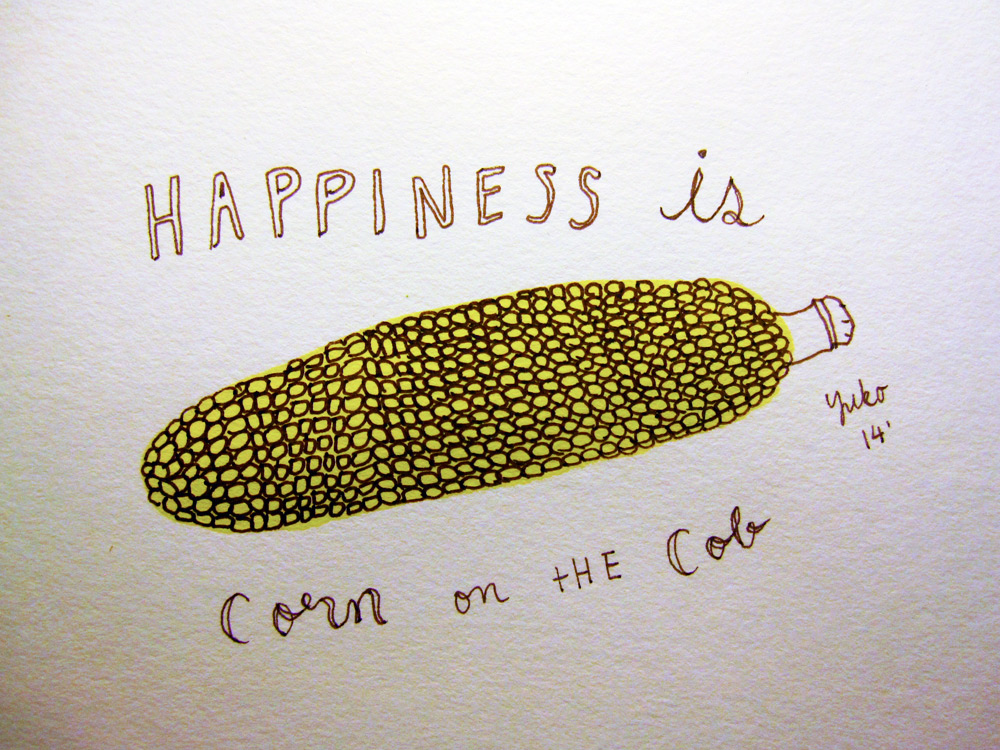 HAPPINESS is
Yuko
14'
Corn on tHE Cob